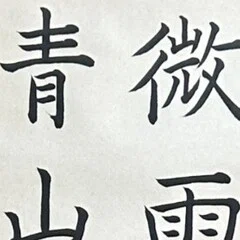 微雨
青山